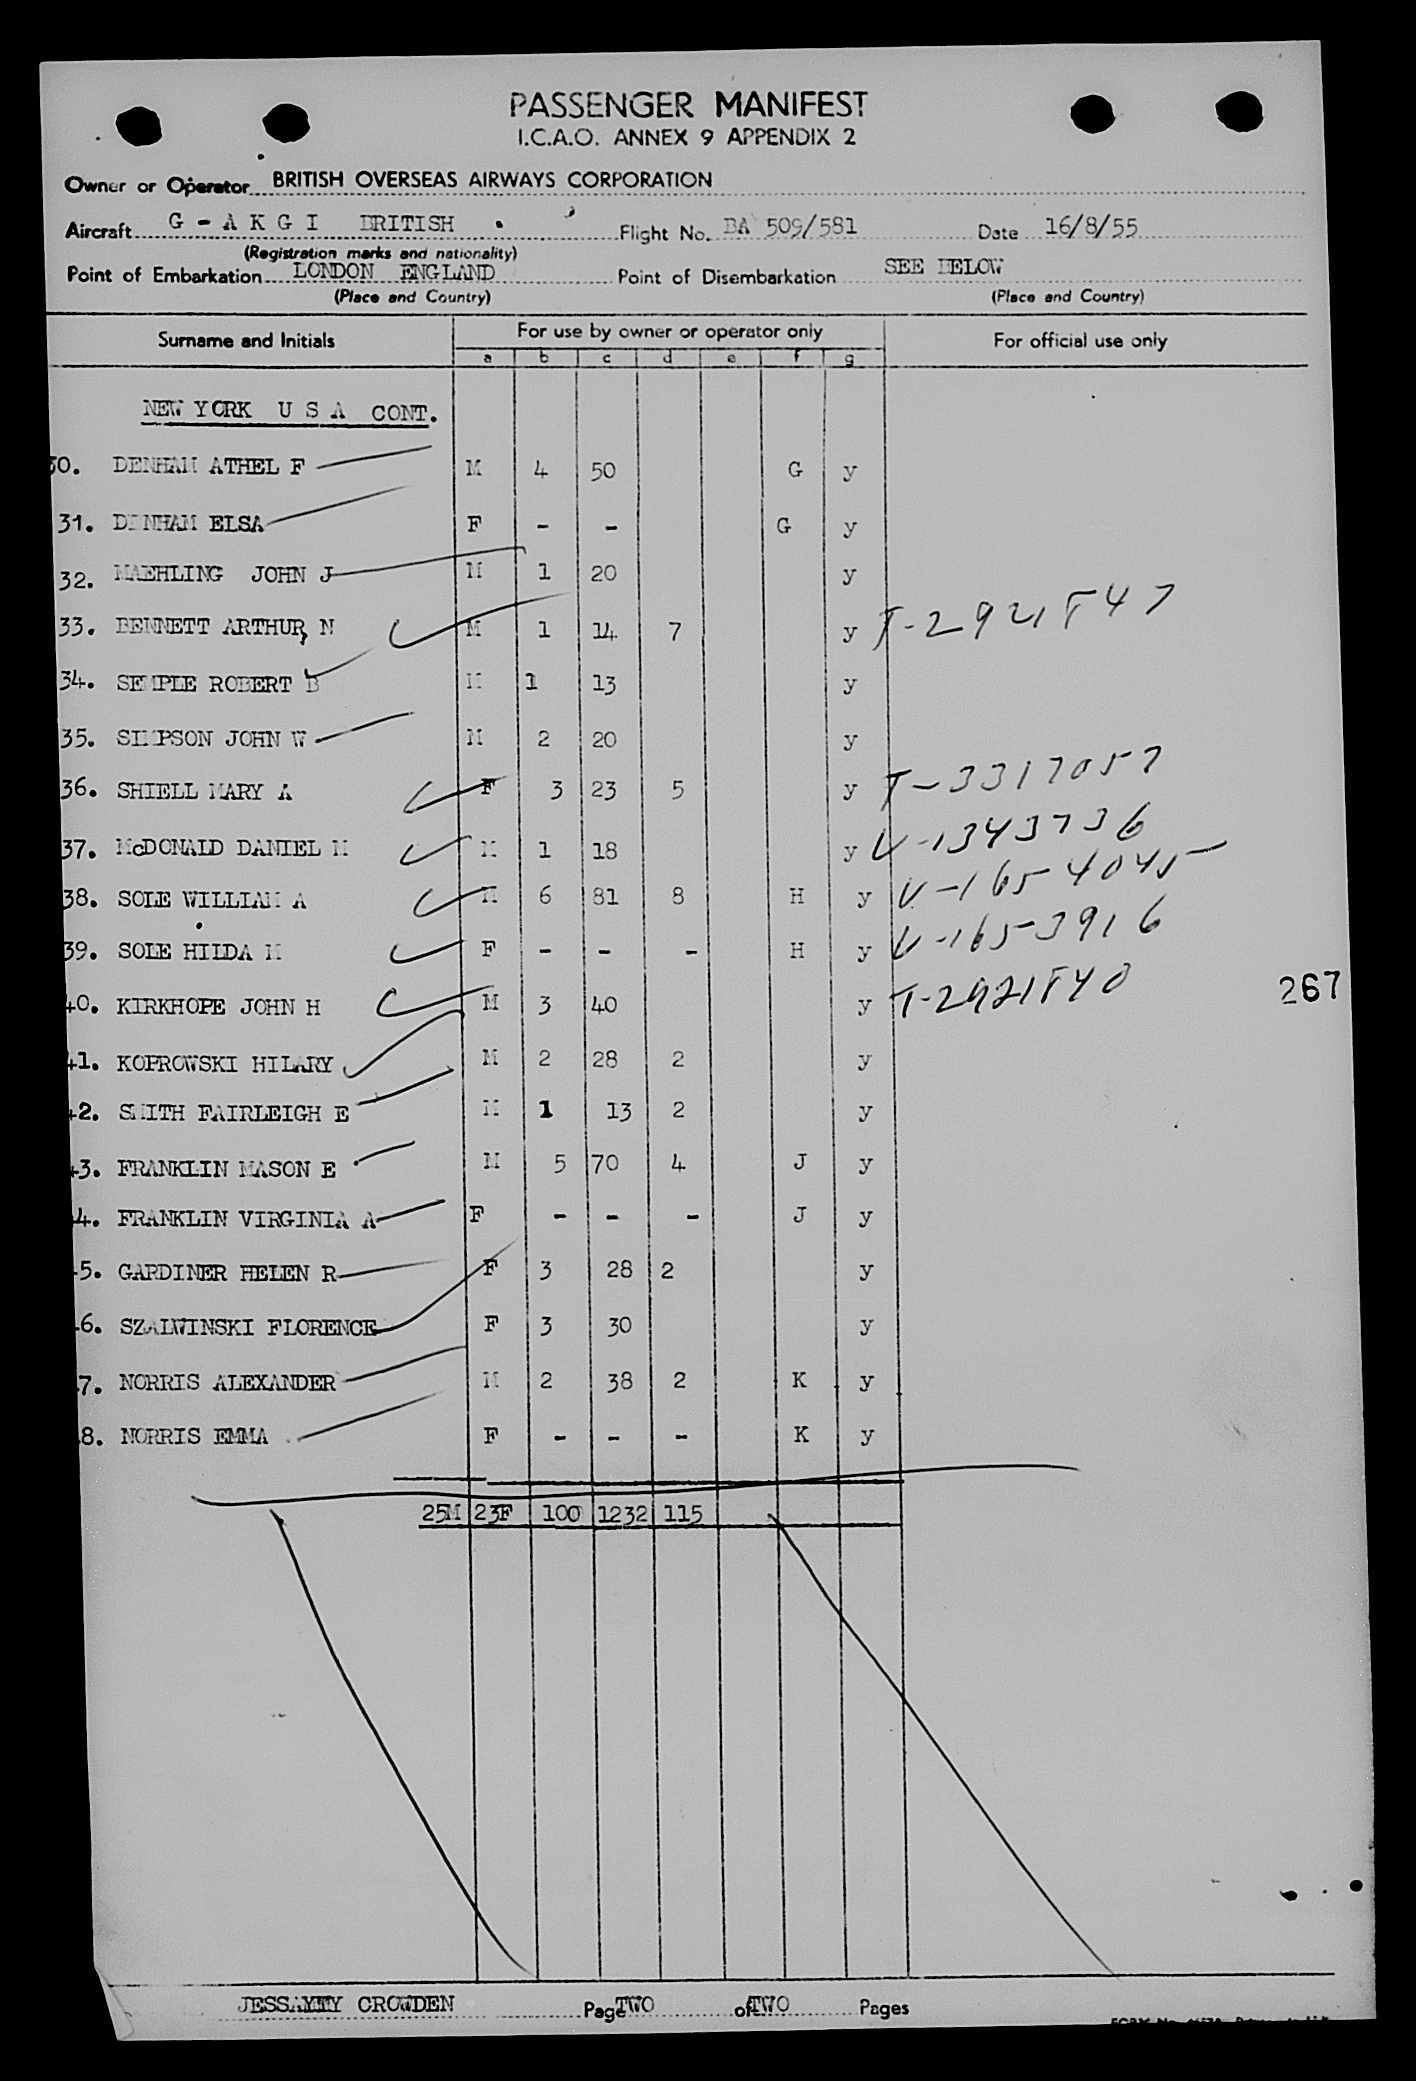 PASSENGER MANIFEST
I.C.A.O. ANNEX 9 APPENDIX 2
Owner or Operator BRITISH OVERSEAS AIRWAYS CORPORATION
Aircraft G - A K G I BRITISH Flight No. BA 509/581 Date 16/8/55
(Registration marks and nationality)
Point of Embarkation LONDON ENGLAND Point of Disembarkation SEE BELOW
(Place and Country) (Place and Country)
Surname and Initials For use by owner or operator only For official use only
a b c d e f g
NEW YORK U S A CONT.
30. DENHAM ATHEL F M 4 50 G y
31. DENHAM ELSA F - - G y
32. MAEHLING JOHN J M 1 20 y
33. BENNETT ARTHUR, N M 1 14 7 y T-2921847
34. SEMPLE ROBERT B M 1 13 y
35. SIMPSON JOHN W M 2 20 y
36. SHIELL MARY A F 3 23 5 y T-3317057
37. McDONALD DANIEL M M 1 18 y V-1343736
38. SOLE WILLIAM A M 6 81 8 H y V-1654045
39. SOLE HILDA M F - - - H y V-1653916
40. KIRKHOPE JOHN H M 3 40 y T-2921840
267
41. KOPROWSKI HILARY M 2 28 2 y
42. SMITH FAIRLEIGH E M 1 13 2 y
43. FRANKLIN MASON E M 5 70 4 J y
4. FRANKLIN VIRGINIA A F - - - J y
5. GARDINER HELEN R F 3 28 2 y
6. SZALWINSKI FLORENCE F 3 30 y
7. NORRIS ALEXANDER M 2 38 2 K y
8. NORRIS EMMA F - - - K y
25M 23F 100 1232 115
CROWDEN Page TWO of TWO Pages